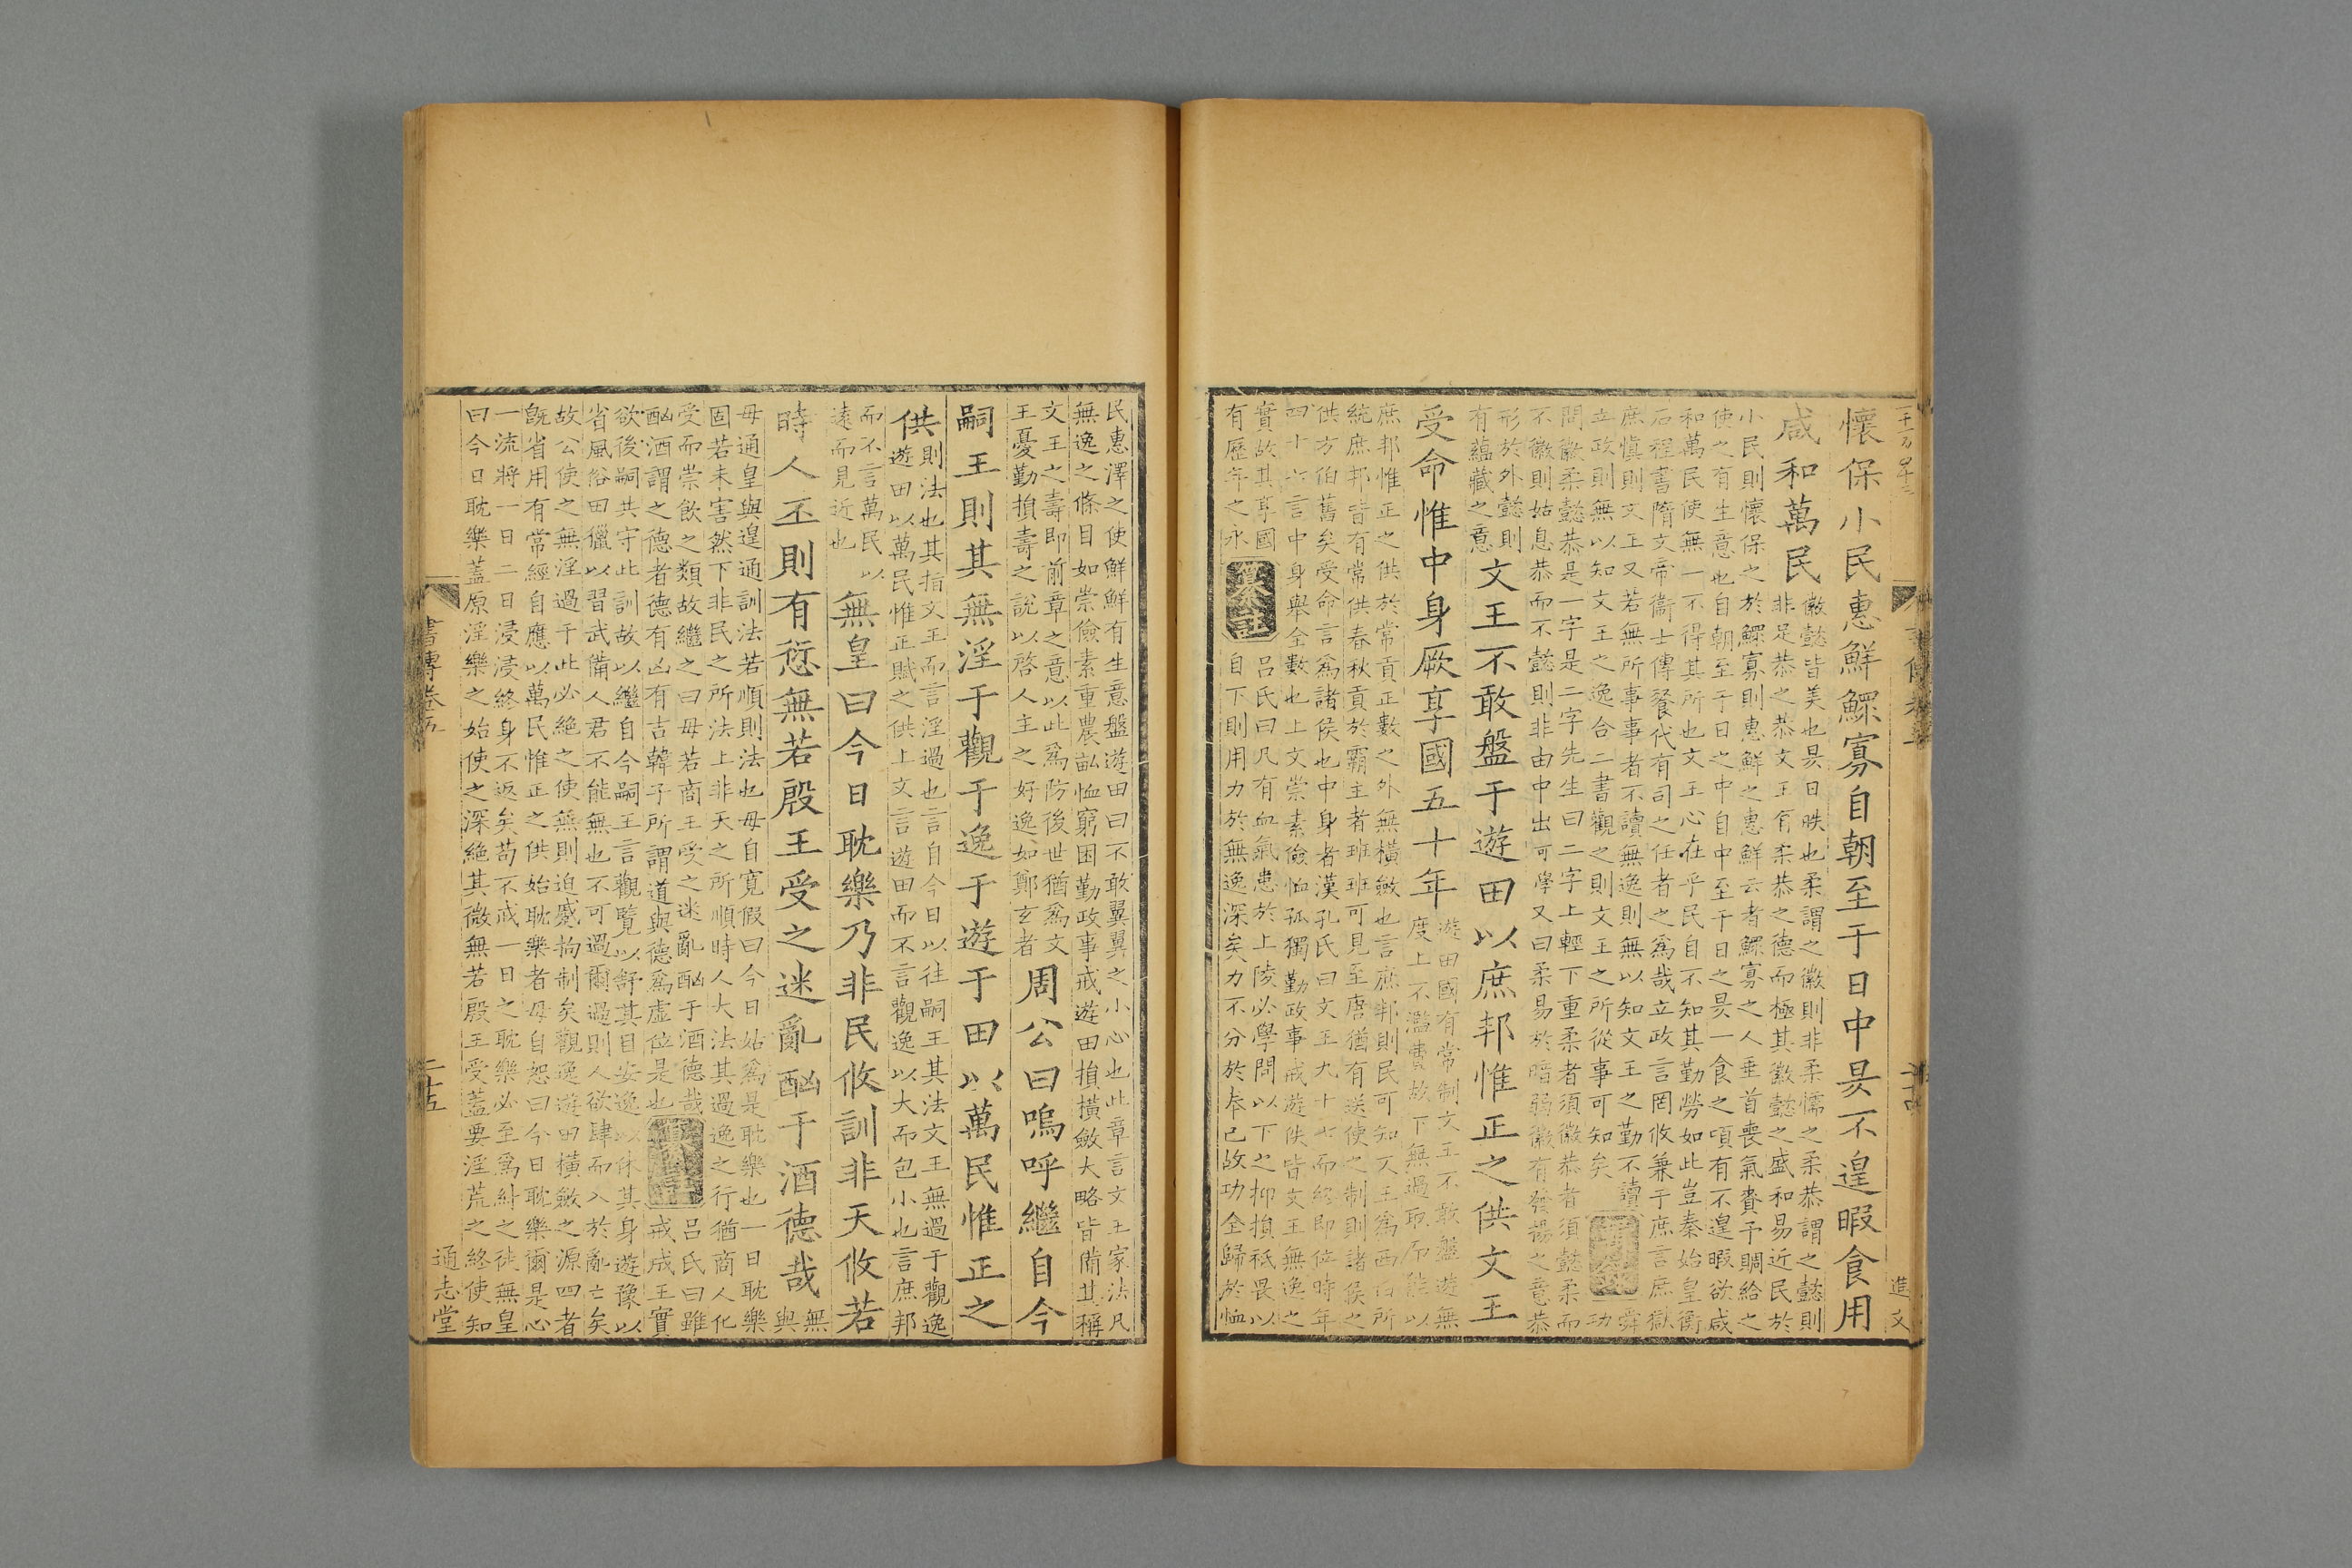 懷保小民惠鮮鰥寡自朝至于日中昃不遑暇食用
咸和萬民
徽懿皆美也昃日昳也柔謂之徽則非柔懦之柔恭謂之懿則
非足恭之恭文王有柔恭之德而極其徽懿之盛和易近民於
小民則懷保之於鰥寡則惠鮮之惠鮮云者鰥寡之人垂首喪氣賚予賙給之
使之有生意也自朝至于日之中自中至于日之昃一食之頃有不遑暇欲咸
和萬民使無一不得其所也文王心在乎民自不知其勤勞如此豈秦始皇衡
石程書隋文帝衞士傳餐代有司之任者之爲哉立政言罔攸兼于庶言庶獄
庶愼則文王又若無所事事者不讀無逸則無以知文王之勤不讀
立政則無以知文王之逸合二書觀之則文王之所從事可知矣
問徽柔懿恭是一字是二字先生曰二字上輕下重柔者須徽恭者須懿柔而
不徽則姑息恭而不懿則非由中出可學又曰柔易於暗弱徽有發揚之意恭
形於外懿則
有蘊藏之意
文王不敢盤于遊田以庶邦惟正之供文王
受命惟中身厥享國五十年
遊田國有常制文王不敢盤遊無
度上不濫費故下無過取而能以
庶邦惟正之供於常貢正數之外無橫斂也言庶邦則民可知文王爲西伯所
統庶邦皆有常供春秋貢於霸主者班班可見至唐猶有送使之制則諸侯之
供方伯舊矣受命言爲諸侯也中身者漢孔氏曰文王九十七而終即位時年
四十六言中身舉全數也上文崇素儉恤孤獨勤政事戒遊佚皆文王無逸之
實故其享國
有歷年之永
纂註
呂氏曰凡有血氣患於上陵必學問以下之抑損祗畏以
自下則用力於無逸深矣力不分於奉己故功全歸於恤
民惠澤之使鮮鮮有生意盤遊田曰不敢翼翼之小心也此章言文王家法凡
無逸之條目如崇儉素重農畝恤窮困勤政事戒遊田損橫斂大略皆備其稱
文王之壽即前章之意以此爲防後世猶爲文
王憂勤損壽之說以啓人主之好逸如鄭玄者
周公曰嗚呼繼自今
嗣王則其無淫于觀于逸于遊于田以萬民惟正之
供
則法也其指文王而言淫過也言自今日以往嗣王其法文王無過于觀逸
遊田以萬民惟正賦之供上文言遊田而不言觀逸以大而包小也言庶邦
而不言萬民以
遠而見近也
無皇曰今日耽樂乃非民攸訓非天攸若
時人丕則有愆無若殷王受之迷亂酗于酒德哉
無
與
毋通皇與遑通訓法若順則法也毋自寬假曰今日姑爲是耽樂也一日耽樂
固若未害然下非民之所法上非天之所順時人大法其過逸之行猶商人化
受而崇飲之類故繼之曰毋若商王受之迷亂酗于酒德哉
酗酒謂之德者德有凶有吉韓子所謂道與德爲虛位是也
呂氏曰雖
戒成王實
欲後嗣共守此訓故以繼自今嗣王言觀覽以舒其目安逸以休其身遊豫以
省風俗田獵以習武備人君不能無也不可過爾過則人欲肆而入於亂亡矣
故公使之無淫過于此必絕之使無則迫蹙拘制矣觀逸遊田橫斂之源四者
旣省用有常經自應以萬民惟正之供始耽樂者毋自恕曰今日耽樂爾是心
一流將一日二日浸浸終身不返矣苟不戒一日之耽樂必至爲紂之徒無皇
曰今日耽樂蓋原淫樂之始使之深絕其微無若殷王受蓋要淫荒之終使知
書傳卷五
二十五
通志堂